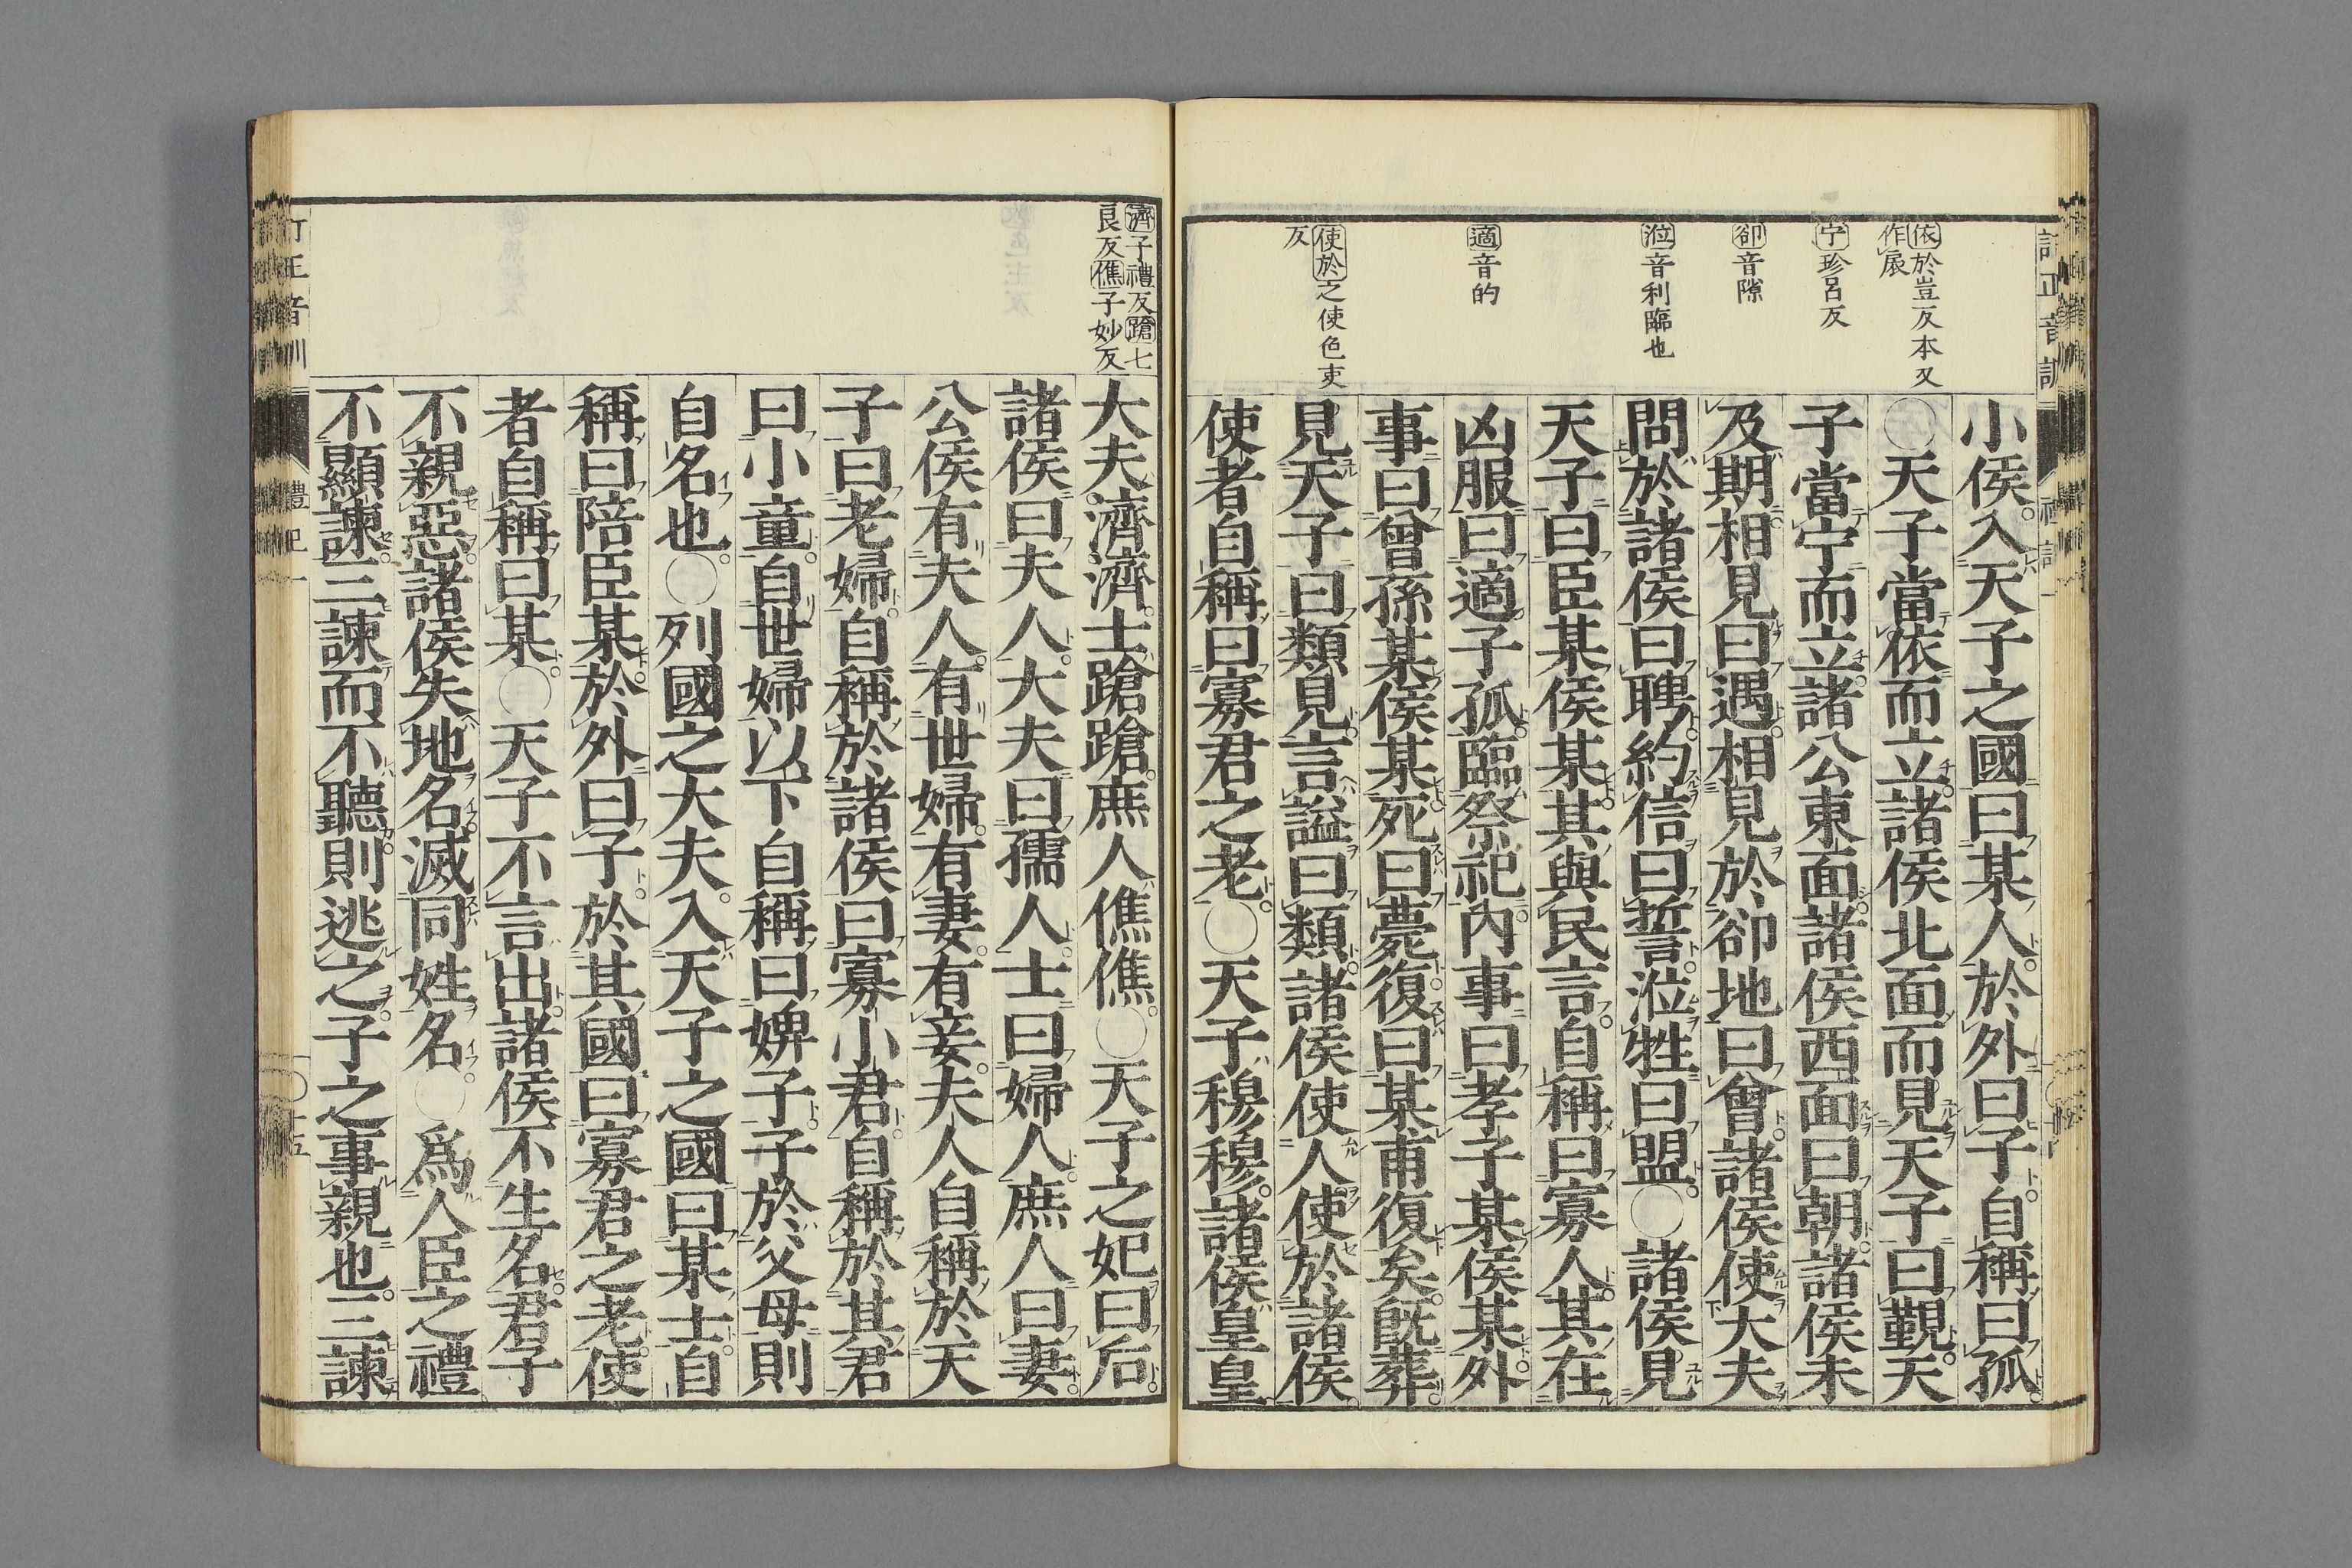 依於豈反本又
作扆
宁珍呂反
卻音隙
涖音利臨也
適音的
使於之使色吏
反
小侯入天子之國曰某人於外曰子自稱曰孤
○天子當依而立諸侯北面而見天子曰覲天
子當宁而立諸公東面諸侯西面曰朝諸侯未
及期相見曰遇相見於卻地曰會諸侯使大夫
問於諸侯曰聘約信曰誓涖牲曰盟○諸侯見
天子曰臣某侯某其與民言自稱曰寡人其在
凶服曰適子孤臨祭祀內事曰孝子某侯某外
事曰曾孫某侯某死曰薨復曰某甫復矣既葬
見天子曰類見言謚曰類諸侯使人使於諸侯
使者自稱曰寡君之老○天子穆穆諸侯皇皇
濟子禮反蹌七
良反僬子妙反
大夫濟濟士蹌蹌庶人僬僬○天子之妃曰后
諸侯曰夫人大夫曰孺人士曰婦人庶人曰妻
公侯有夫人有世婦有妻有妾夫人自稱於天
子曰老婦自稱於諸侯曰寡小君自稱於其君
曰小童自世婦以下自稱曰婢子子於父母則
自名也○列國之大夫入天子之國曰某士自
稱曰陪臣某於外曰子於其國曰寡君之老使
者自稱曰某○天子不言出諸侯不生名君子
不親惡諸侯失地名滅同姓名○爲人臣之禮
不顯諫三諫而不聽則逃之子之事親也三諫
訂正音訓
禮記一